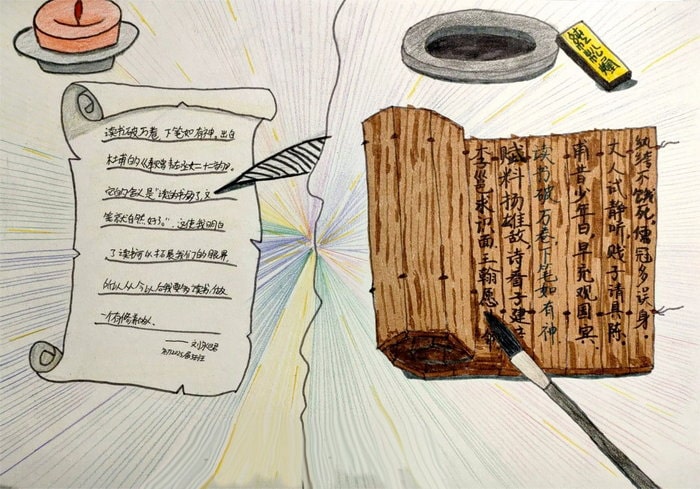 读书破万卷 下笔如有神。出自
杜甫的《奉赠韦左丞二十二韵》。
它的含义是“读的书多了,文
笔就自然好了。”这使我明白
了读书可以拓展我们的眼界
所以从今以后我要多读书,做
一个有修养的人。
纨绔不饿死,儒冠多误身
丈人试静听,贱子请具陈.
甫昔少年日,早充观国宾.
读书破万卷,下笔如有神
赋料扬雄敌,诗看子建
李邕求识面,王翰愿